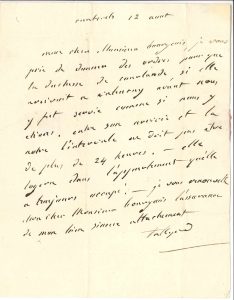 12 aout
mon cher Monsieur bourgeois, je vous
prie de donner des ordres pour que
la duchesse de courlande, si elle
arrivoit a valençay avant nous,
y fut servie comme si nous y
étions. entre son arrivée et la
notre l'intervale ne doit pas être
de plus de 24 heures. — elle
logera dans l'appartement qu'elle
a toujours occupé. — je vous renouvelle
mon cher Monsieur bourgeois l'assurance
de mon bien sincère attachement